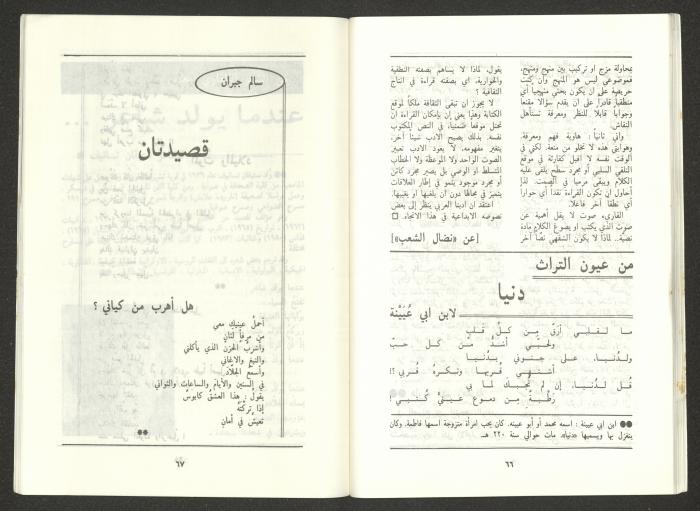 بمحاولة مزج او تركيب بين منهج ومنهج،
فموضوعي ليس هو المنهج وأن كنت
حريصة على ان يكون بحثي منهجياً أي
منطقياً قادراً على ان يقدم سؤالا مقنعاً
وجواباً قابلاً للنظر ومعرفة تستأهل
النقاش.
واني ثانياً: هاوية فهم ومعرفة.
وهوايتي هذه لا تخلو من متعة، لكني في
الوقت نفسه لا اقبل كقارئة في موقع
التلقي السلبي أو مجرد سطح يتلقى عليه
الكلام ويبقى مرمياً في الصمت. لذا
أحاول ان تكون القراءة نقداً أي حواراً
أي نطقاً آخر فاعلا.
القارىء صوت لا يقل أهمية عن
صوت الذي يكتب او يصوغ الكلام مادة
نصية.. لماذا لا يكون الشفهي نصاً آخر
يقول، لماذا لا يساهم بصفته النطقية
والحوارية، اي بصفته قراءة في انتاج
الثقافية ؟
لا يجوز ان تبقى الثقافة ملكاً لموقع
الكتابة وهذا يعني ان بإمكان القراءة ان
تحتل موقعاً ضمنياً، في النص المكتوب
نفسه. بذلك يصبح الادب شيئا آخر،
يتغير مفهومه، لا يعود الادب تعبير
الصوت الواحد ولا الموعظة ولا الخطاب
المتسلط او الوصي بل يصير مجرد كائن
أو مجرد موجود ينمو في إطار العلاقات
يتميز في مجالها دون ان يلغيها او يغيبها.
اعتقد ان ادبنا العربي ينظر إلى بعض
نصوصه الابداعية في هذا الاتجاه. □
[عن «نضال الشعب»]
من عيون التراث
دنيا
لابن ابي عُيَيْنة
ما لقلبي أرَقّ مِن كلِّ قلبِ
ولحُبّي أشدُّ مِن كل حبّ
ولدُنيا، على جنوني بدُنيا
أشتهي قُربها، وتكره قُربي ؟!
قُل لدُنيا، إن لم تُجبك لما بي
رطبةً مِن دموع عينيَّ كُتبي !
●● ابن ابي عيينة : اسمه محمد أو أبو عيينه. كان يحب امرأة متزوجة اسمها فاطمة. وكان
يتغزل بها ويسميها «دنيا». مات حوالي سنة ٢٢٠ هـ
٦٦
سالم جبران
قصيدتان
هل أهرب من كياني ؟
أحملُ عينيكِ معي
من مرفأٍ لثانِ
وأشربُ الحزنَ الذي يأكلني
والتبغَ والاغاني
وأسمعُ الجلّادَ
في السنين والأيام والساعاتِ والثواني
يقولُ : هذا العشقُ كابوسٌ
إذا تركْتَهُ
تعيش في أمانِ
●●
٦٧